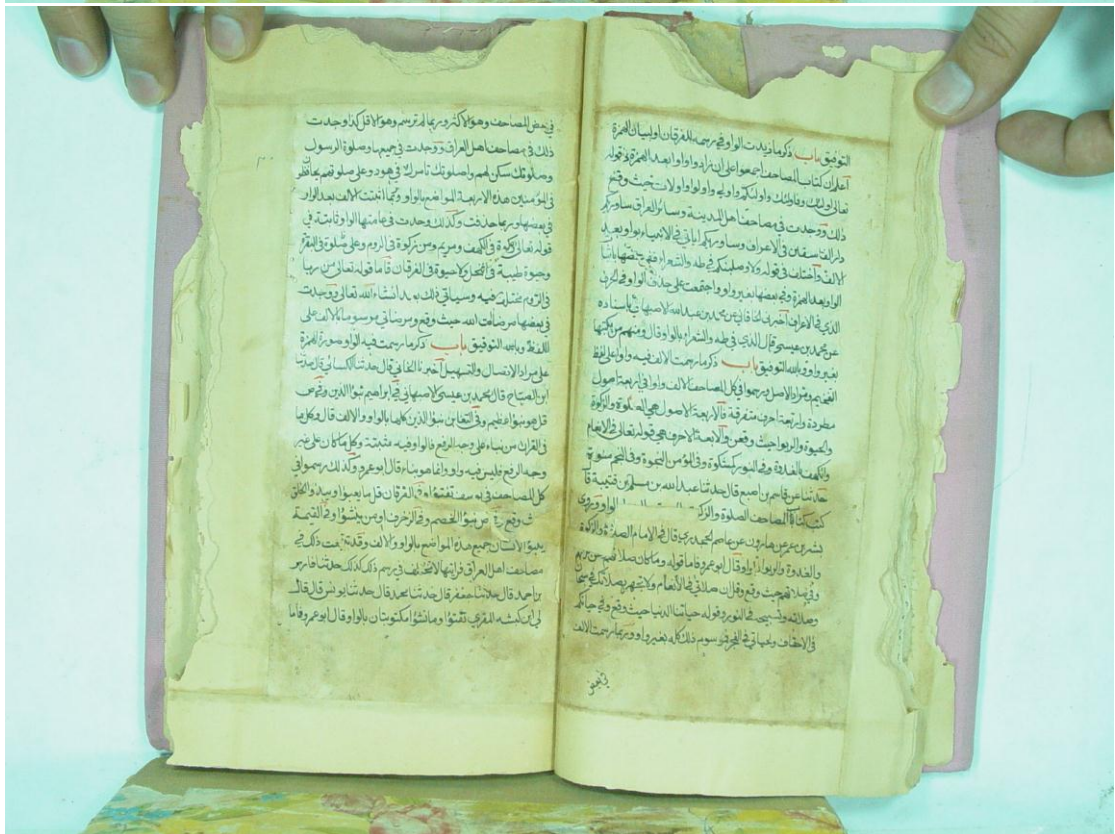 التوفيق باب ذكر ما زيدت الواو في رسمه للفرقان او لبيان الهمزة
اعلم ان كتاب المصاحف اجمعوا على ان زادوا واوا بعد الهمزة في قوله
تعالى اولئك واولئكم واولي واولوا واولات حيث وقع
ذلك ووجدت في مصاحف اهل المدينة وسائر العراق ساوريكم
دار الفسقين في الاعراف وساوريكم اياتي في الانبياء بواو بعد
الالف واختلف في قوله ولاوصلبنكم في طه والشعراء ففي بعضها باثبات
الواو بعد الهمزة وفي بعضها بغير واو واجتمعت على حذف الواو في الحرف
الذي في الاعراف اخبرني الخاقاني عن محمد بن عبد الله الاصبهاني باسناده
عن محمد بن عيسى قال الذي في طه والشعراء بالواو قال ومنهم من يكتبها
بغير واو وبالله التوفيق باب ذكر ما رسمت الالف فيه واوا على لفظ
التفخيم ومراد الاصل ورسموا في كل المصاحف الالف واوا في اربعة اصول
مطردة واربعة احرف متفرقة فالاربعة الاصول هي الصلوة والزكوة
والحيوة والربوا حيث وقعن والاربعة الاحرف هي قوله تعالى في الانعام
والكهف بالغدوة وفي النور كمشكوة وفي المؤمن النجوة وفي النجم منوة
حدثنا عن قاسم بن اصبغ قال حدثنا عبد الله بن مسلم بن قتيبة قال
كتب كتاب المصاحف الصلوة والزكوة الواو وروى
بشر بن عمر عن هارون عن عاصم الجحدري قال في الامام الصلوة والزكوة
والغدوة والربوا بالواو قال ابو عمرو فاما قوله وما كان صلاتهم
وفي صلاتهم حيث وقع وقل ان صلاتي في الانعام ولا تجهر بصلاتك في سبحان
وصلاته وتسبيحه في النور وقوله حياتنا الدنيا حيث وقع وفي حياتكم
في الاحقاف ولحياتي في الفجر فمرسوم ذلك كله بغير واو وربما رسمت الالف
في بعض
في بعض المصاحف وهو الاكثر وربما لم ترسم وهو الاقل كذا وجدت
ذلك في مصاحف اهل العراق ووجدت في جميعها وصلوة الرسول
وصلوتك سكن لهم واصلوتك تامرك في هود وعلى صلوتهم يحافظون
في المؤمنين هذه الاربعة المواضع بالواو وربما اثبتت الالف بعد الواو
في بعضها وربما حذفت وكذلك وجدت في عامتها الواو ثابتة في
قوله تعالى زكوة في الكهف ومريم ومن زكوة في الروم وعلى حيوة في البقرة
وحيوة طيبة في النحل ولا حيوة في الفرقان فاما قوله تعالى من ربا
في الروم فمختلف فيه وسياتي ذلك بعد انشاء الله تعالى ووجدت
في بعضها مرضات الله حيث وقع ومرضاتي مرسوما بالالف على
اللفظ وبالله التوفيق باب ذكر ما رسمت فيه الواو صورة الهمزة
على مراد الاتصال والتسهيل اخبرنا الخاقاني قال حدثنا الكسائي قال حدثنا
ابن الصباح قال محمد بن عيسى الاصبهاني في ابراهيم نبؤا الذين وفي ص
قل هو نبؤا عظيم وفي التغابن نبؤا الذين كلها بالواو والالف قال وكل ما
في القران من نباء على وجه الرفع فالواو فيه مثبتة وكل ما كان على غير
وجه الرفع فليس فيه واو وانما هو نباء قال ابو عمرو وكذلك رسموا في
كل المصاحف في يوسف تفتؤا وفي الفرقان قل ما يعبؤا ويبدؤ الخلق
حيث وقع وفي ص نبؤا الخصم وفي الزخرف اومن ينشؤا وفي القيمة
ينبؤا الانسان جميع هذه المواضع بالواو والالف وقد تتبعت ذلك في
مصاحف اهل العراق فرايتها لا تختلف في رسم ذلك كذلك حدثنا فارس
بن احمد قال حدثنا جعفر قال حدثنا محمد قال حدثنا يونس قال قال
لي ابن كيسة المقري تفتؤا وما نشؤا مكتوبتان بالواو قال ابو عمرو فاما